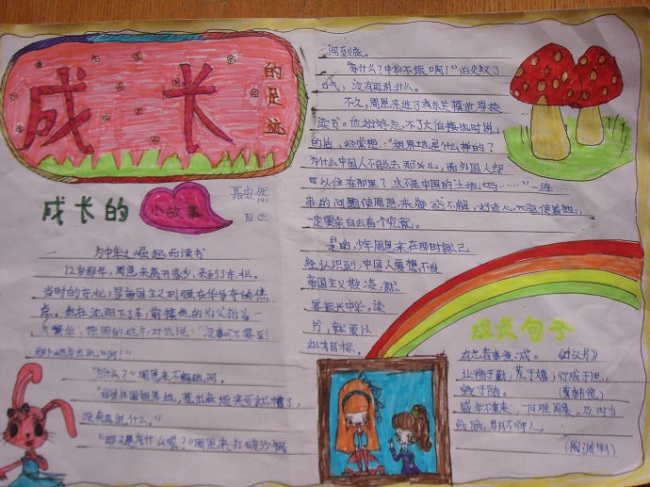 成长
的足迹
成长的
小故事
为中华之崛起而读书
12岁那年，周恩来离开家乡，来到东北。
当时的东北，是帝国主义列强在华争夺的焦
点。他在沈阳下了车，前
没事可不要到
"为什么？"周恩来不解地问。
外国租界地，惹出麻烦来可就糟了
没处去说什么。"
"那又是为什么呢？"周恩来打破沙锅
问到底。
"为什么？中华不振啊！"伯父叹了
口气，没有再说什么。
不久，周恩来进了东关模范学校
读书。他始终忘不了大伯接他时说
的话，经常想："租界地是什么样的？
为什么中国人不能去那儿，而外国人却
可以住在那里？这不是中国的土地吗……"一连
串的问题使周恩来
一定要亲自去看个究竟。
是的，少年周恩来在那时就已
经认识到，中国人要想不受
帝国主义欺凌，就
要振兴中华，读
书，就要以
此为目标。
成长句子
有志者事竟成。《后汉书》
业精于勤，荒于嬉；行成于思，
毁于随。（韩愈）
盛年不重来，一日难再晨。及时当
勉励，岁月不待人。
（陶渊明）